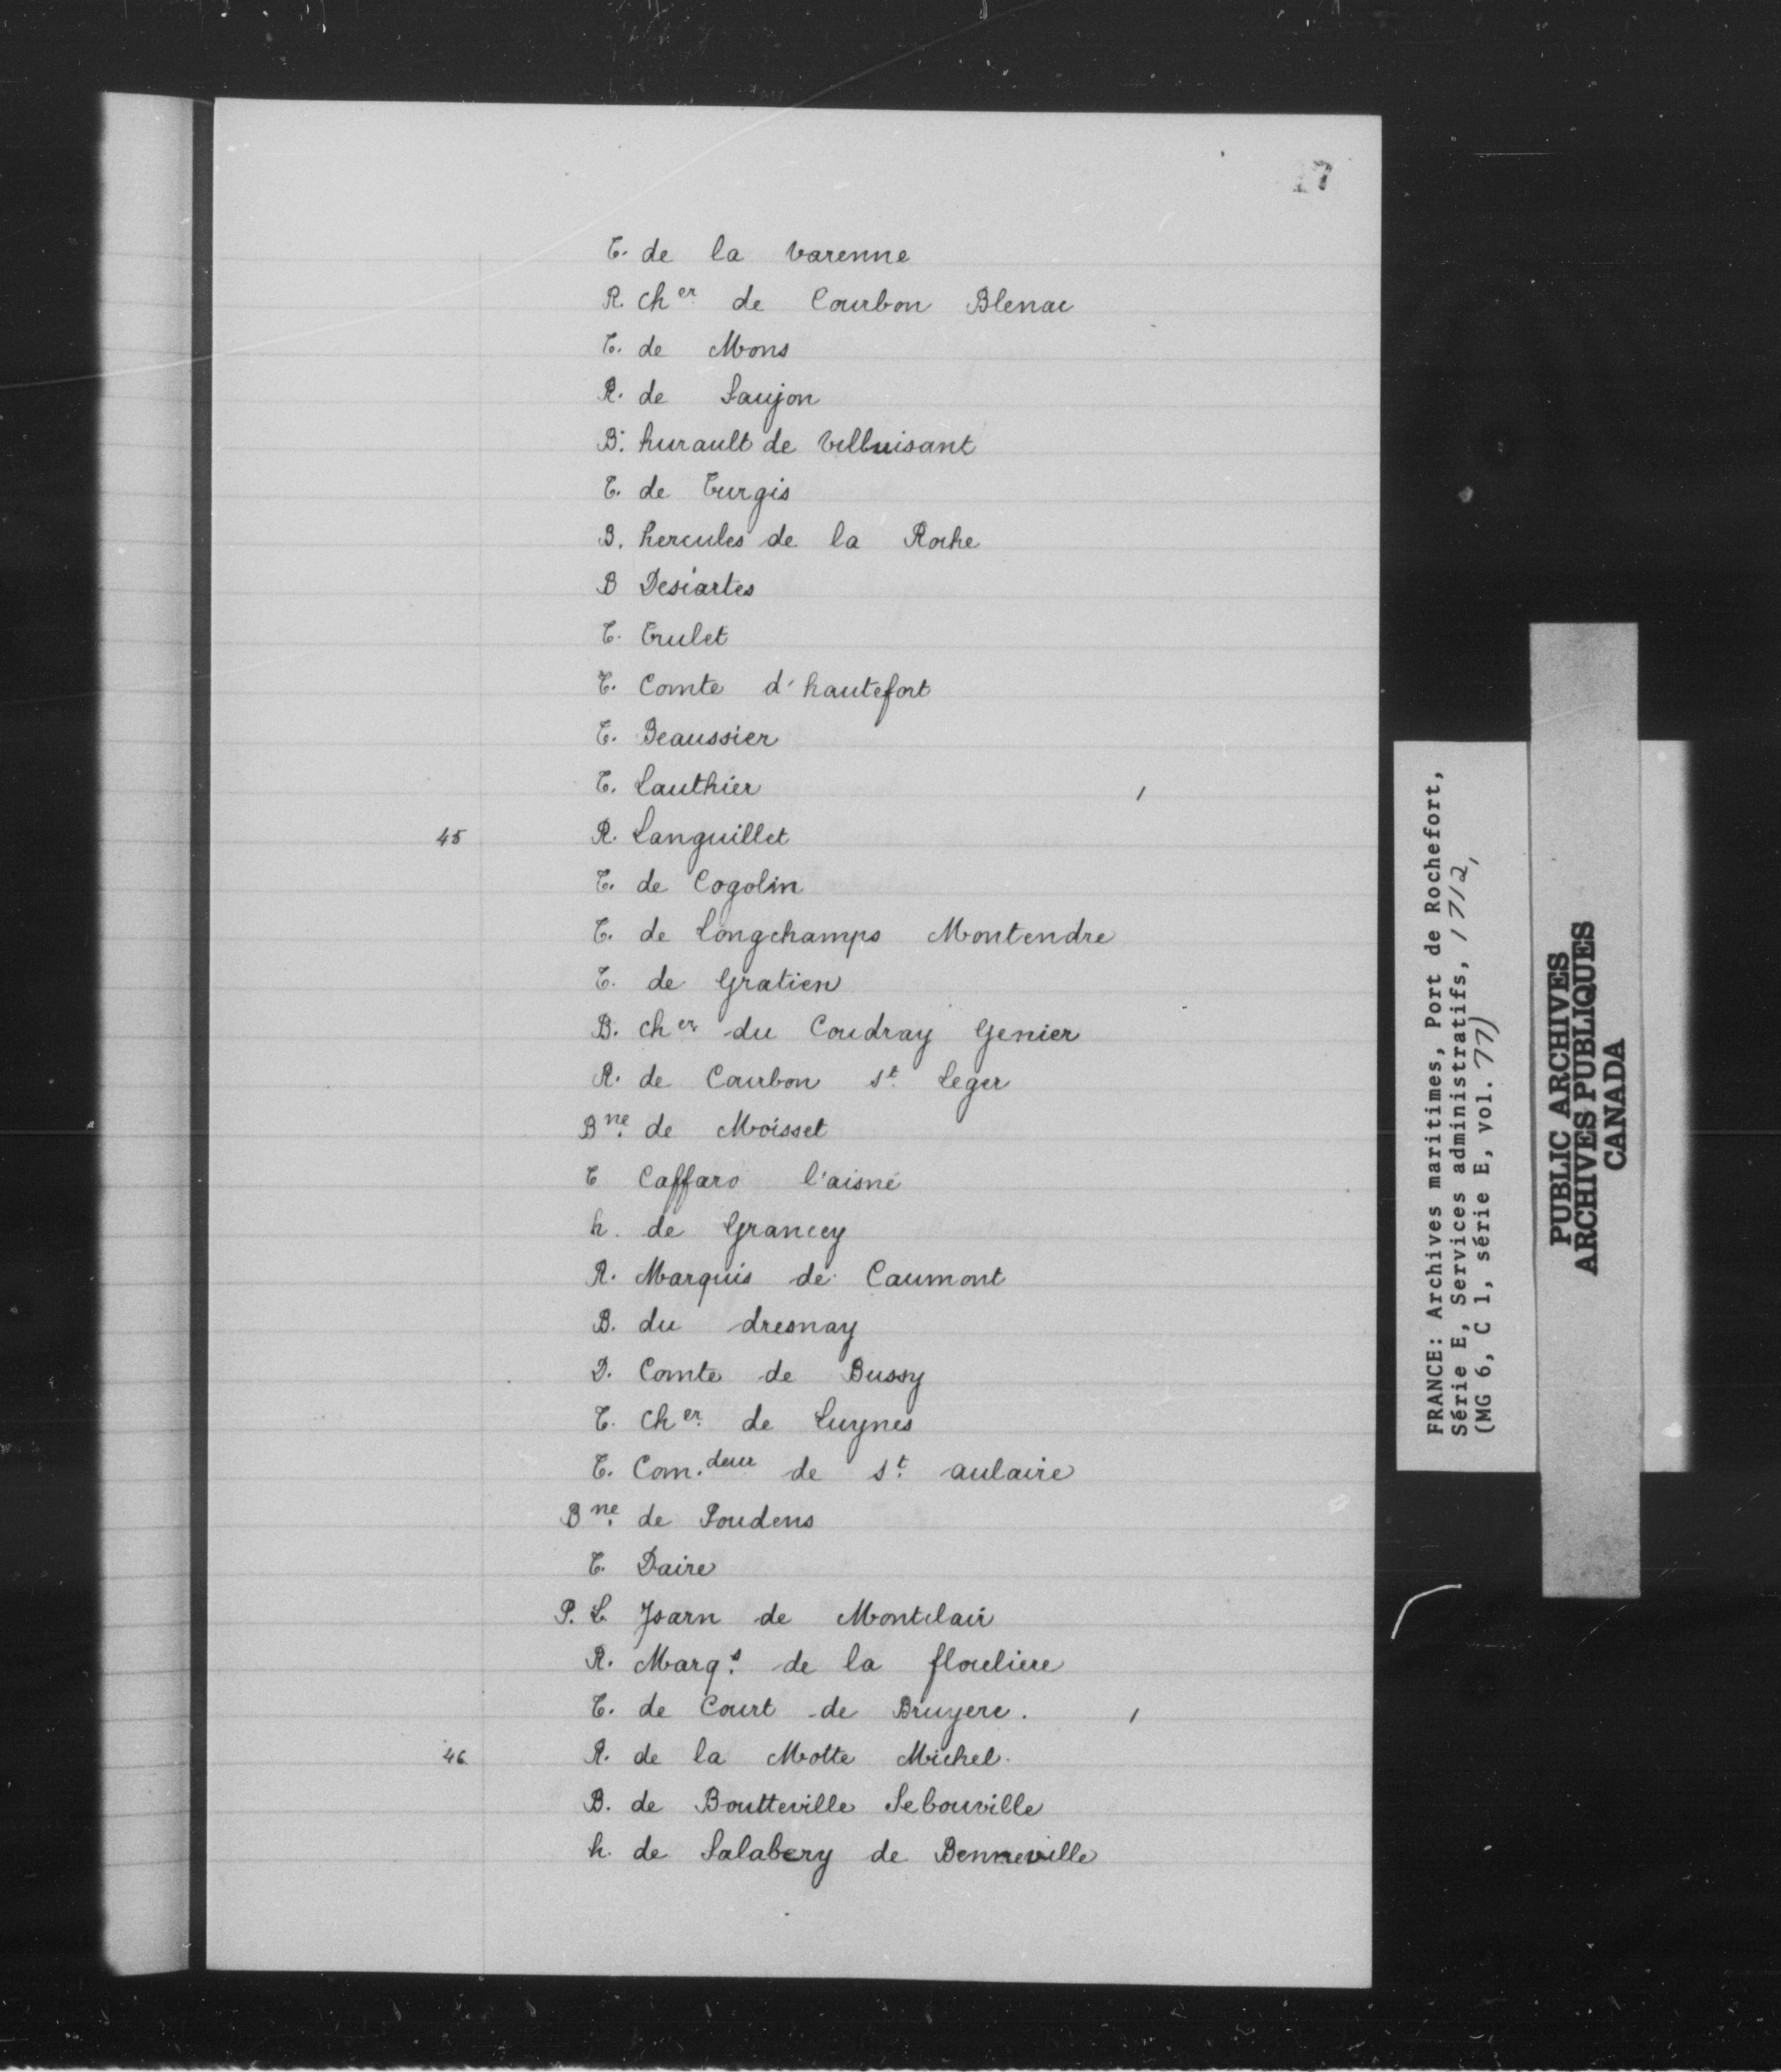 17
T. de la Varenne
R. Cher de Courbon Blenac
T. de Mons
R. de Saujon
B. hurault de Villuisant
T. de Turgis
B. hercules de la Roche
B Descartes
T. Trulet
T. Comte d'hautefort
T. Beaussier
T. Lauthier /
45 R. Languillet
T. de Cogolin
T. de Longchamps Montendre
T. de Gratien
B. Cher du Coudray Genier
R. de Courbon St. Leger
Bne. de Moisset
T Caffaro l'aisné
h. de Grancey
R. Marquis de Caumont
B. du dresnay
D. Comte de Bussy
T. Cher. de Luynes
T. Com.deur de St. aulaire
Bne. de Poudens
T. Daire
P. L. Jsarn de Montclair
R. Marqs. de la flouliere
T. de Court de Bruyere. /
46 R. de la Motte Michel.
B. de Boutteville Sebouville
h. de Salabery de Benneville
FRANCE: Archives maritimes, Port de Rochefort,
Série E, Services administratifs, 1712,
(MG 6, C 1, série E, vol. 77)
PUBLIC ARCHIVES
ARCHIVES PUBLIQUES
CANADA